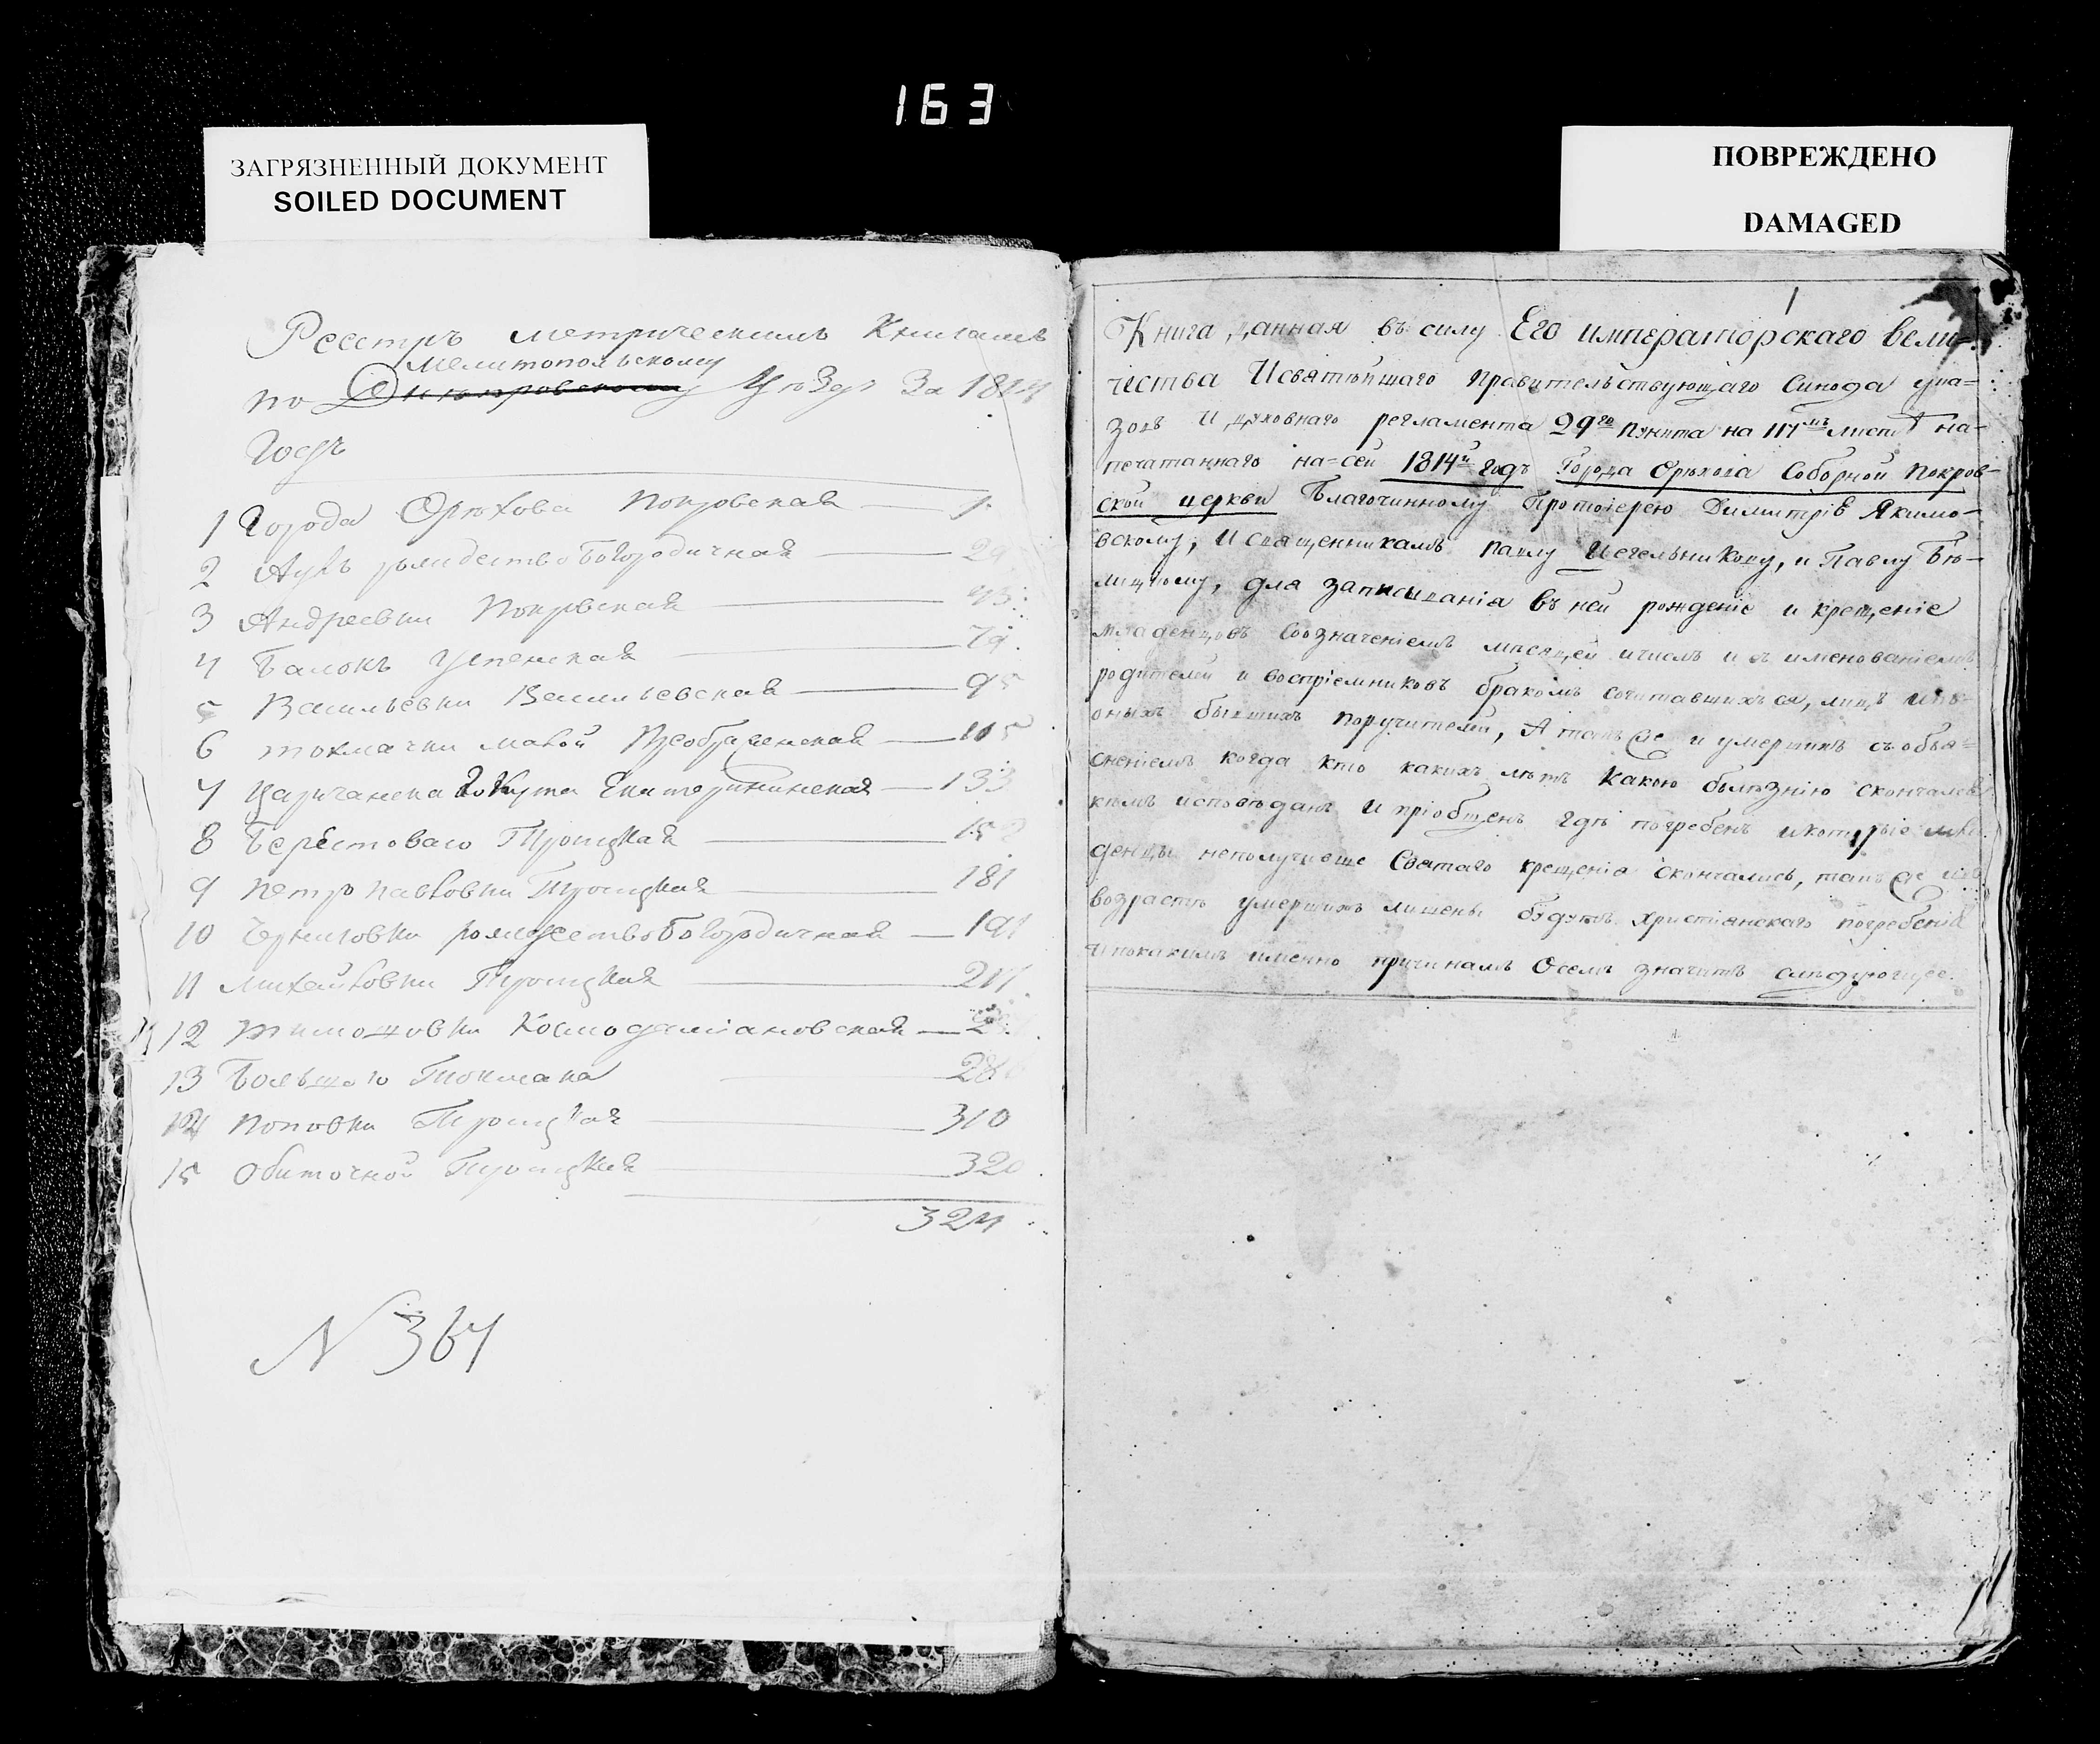 163
ЗАГРЯЗНЕННЫЙ ДОКУМЕНТ
SOILED DOCUMENT
ПОВРЕЖДЕНО
DAMAGED
Реестръ метрическимъ Книгамъ
Мелитопольскому
по Днепровскому Уѣзду За 1814
Годъ
1 Города Орѣхова Покровская — 1
2 Аулъ рождествобогородичная —
3 Андреевки Покровская —
4 Балокъ Успенская —
5 Васильевки Васильевская — 95
6 токмачки малой Преображенская — 115
7 Царичанска Екатерининская — 133
8 Берестоваго Троицкая — 15
9 петропавловки Троицкая — 181
10 Черниговки рождествобогородичная — 191
11 михайловки Троицкая — 217
12 тимошовки Космодамиановская —
13 Большого Токмака — 28
14 поповки Троицкая — 310
15 Обиточной Троицкая — 320
324
N 364
1
Книга данная въ силу Его императорскаго вели-
чества И святѣйшаго правительствующаго Синода ука-
зовъ И духовнаго регламента 29го пункта на 117мъ листѣ на-
печатаннаго на-сей 1814й годъ Города Орѣхова Соборной покров-
ской церкви Благочинному Протоіерею Димитрію Якимо-
вскому, И священникамъ павлу и Павлу Бѣ-
для записыванія въ ней рожденіе и крещеніе
младенцовъ соозначеніемъ месяцей ичислъ и съ именованіемъ
родителей и воспріемниковъ бракомъ сочитавшихъся, лицъ
оныхъ бывшихъ поручителей, А такъже и умершихъ съ объя-
сненіемъ когда кто какихъ лѣтъ какою болѣзнію скончался
кѣмъ исповѣданъ и пріобщенъ гдѣ погребенъ икоторые мла
денцы неполучивше Святаго крещенія скончались, такъже
возрастѣ умершихъ лишены будутъ христіянскаго погребенія
и покакимъ именно причинамъ Осемъ значитъ слѣдующее.